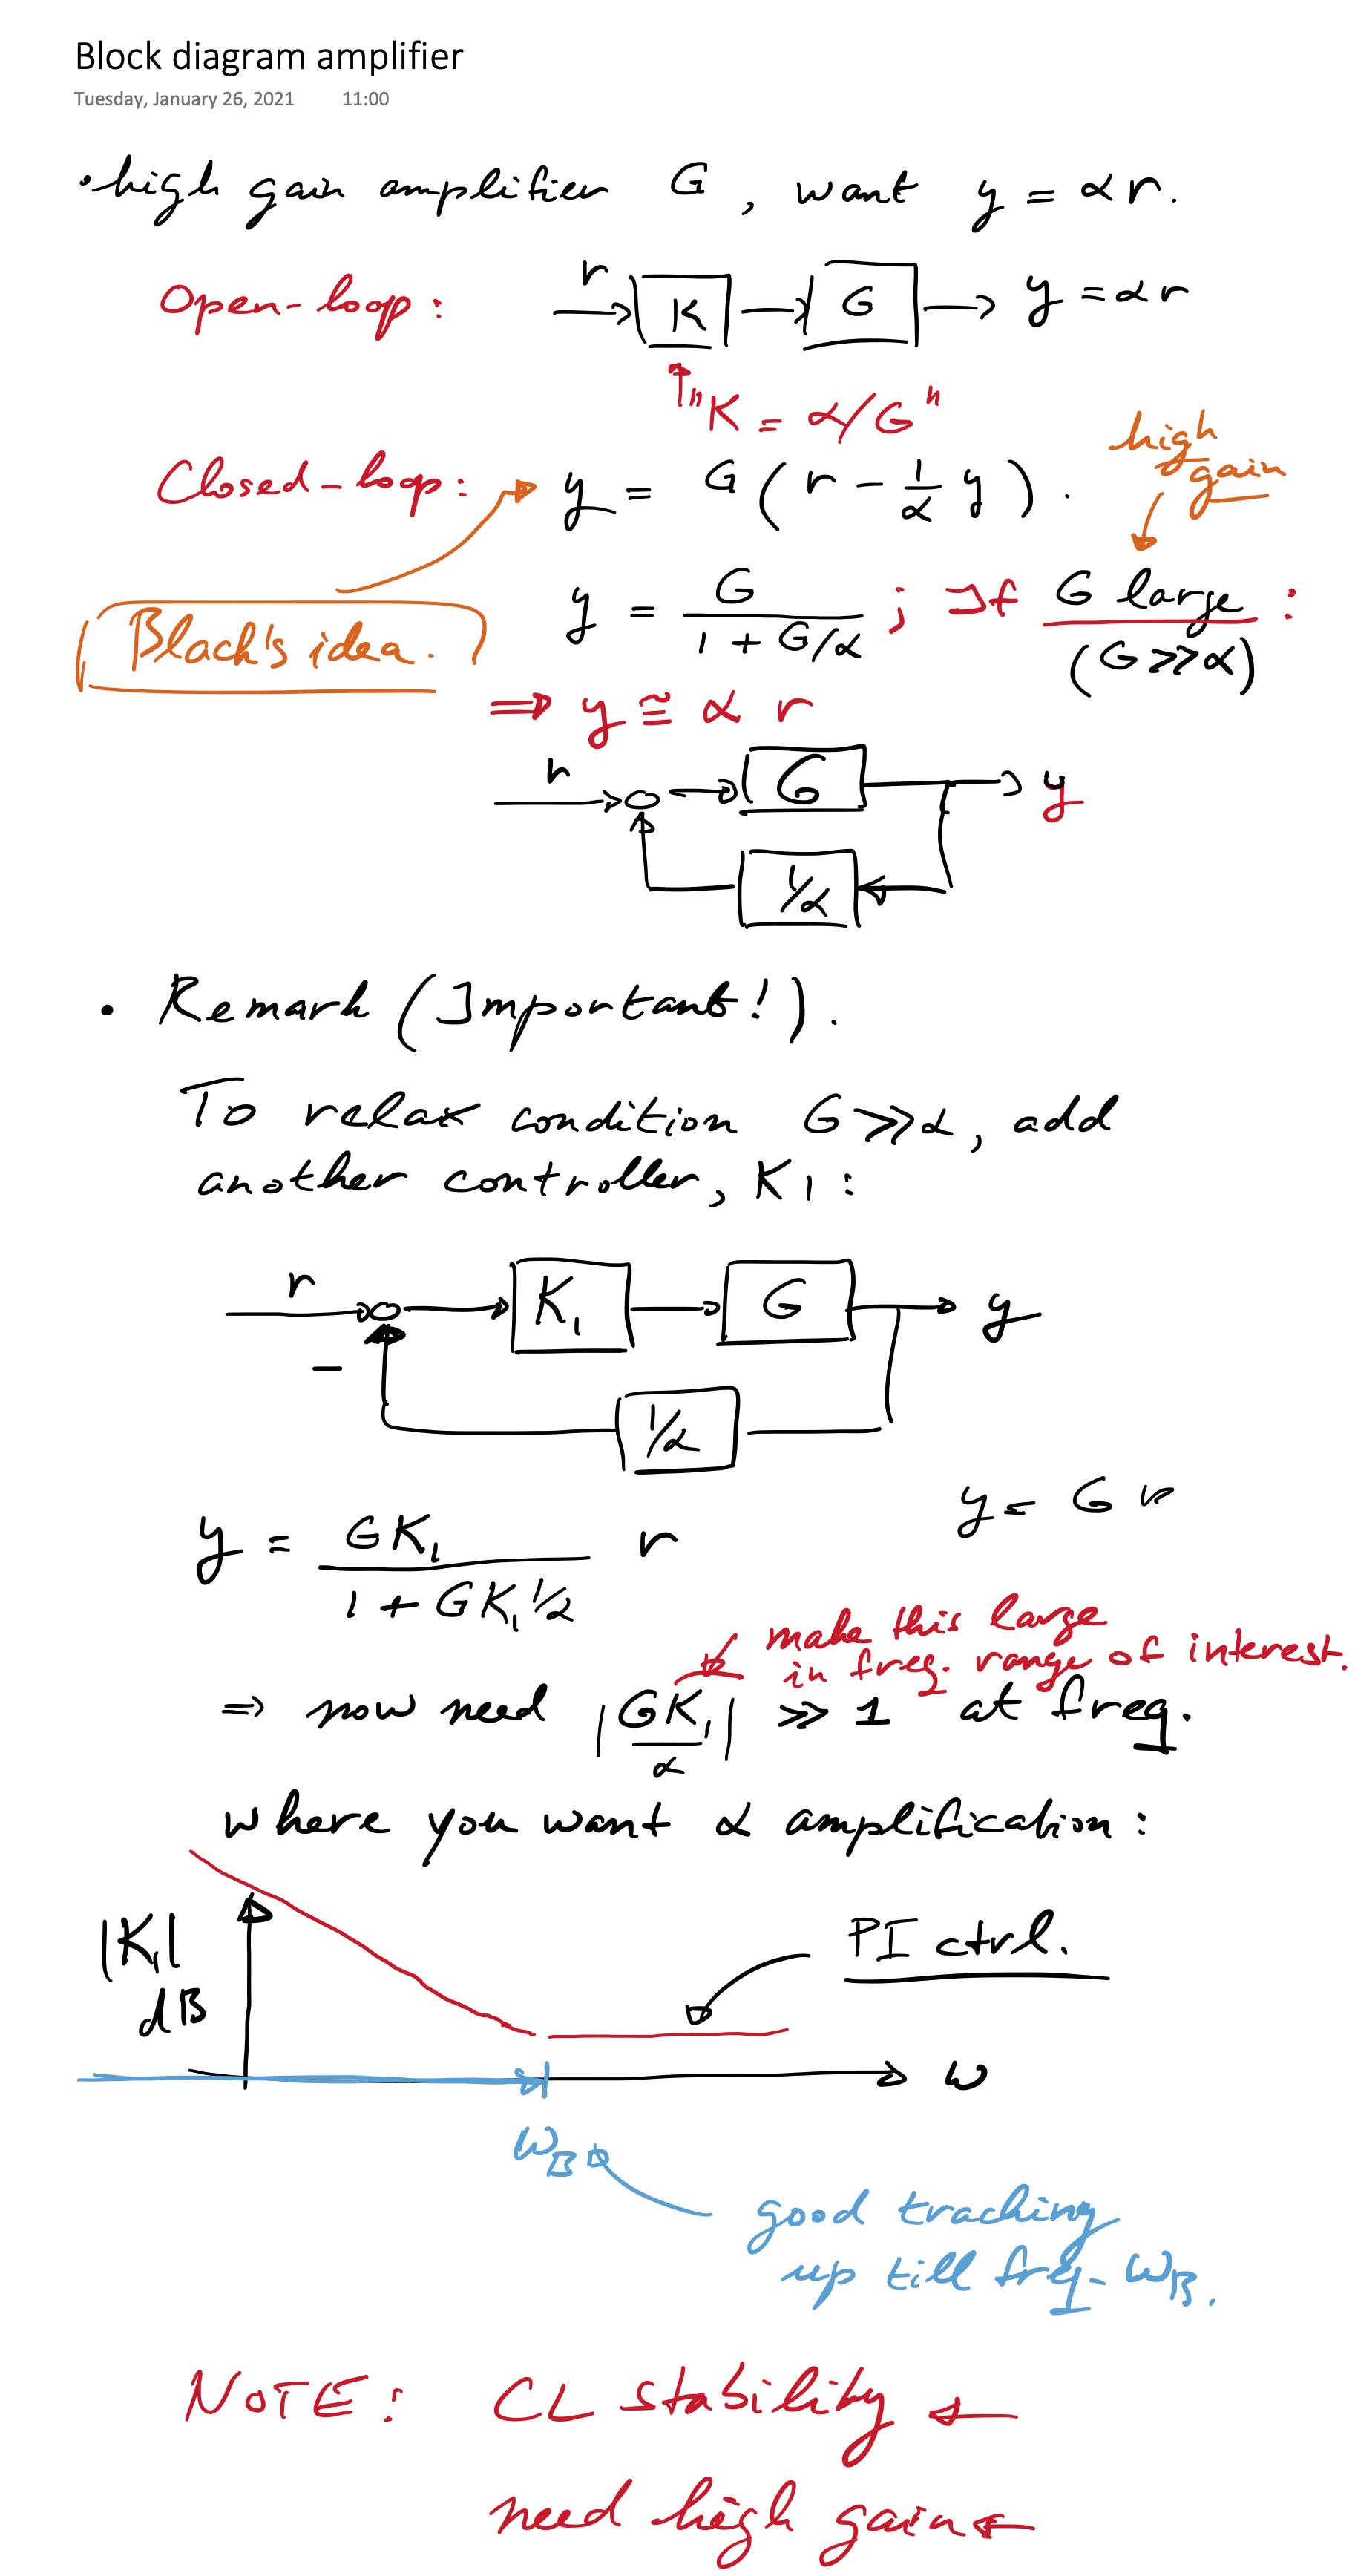 Block diagram amplifier
Tuesday, January 26, 2021 11:00
• high gain amplifier G, want y = α r.
Open-loop: r K G y = α r
"K = α/G"
high
gain
Closed-loop: y = G ( r - 1/α y ).
y = G / (1 + G/α) ; If G large :
(G >> α)
Black's idea.
⇒ y ≅ α r
r G y
1/α
• Remark (Important!).
To relax condition G >> α, add
another controller, K1:
r K₁ G y
−
1/α
y = G r
y = GK₁ / (1 + GK₁ 1/α) r
make this large
in freq. range of interest.
⇒ now need |GK₁/α| >> 1 at freq.
where you want α amplification:
|K₁|
dB
PI ctrl.
ω
ω_B
good tracking
up till freq. ω_B.
NOTE: CL stability ←
need high gain ←